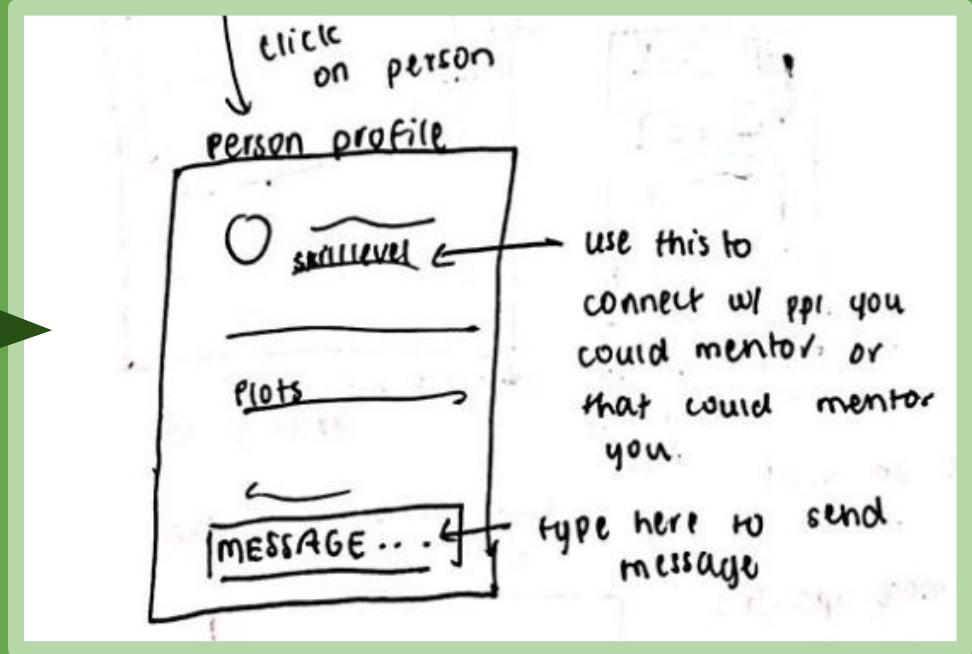 click
on person
person profile
skill level
use this to
connect w/ ppl. you
could mentor, or
that could mentor
you.
Plots
MESSAGE ...
type here to send
message